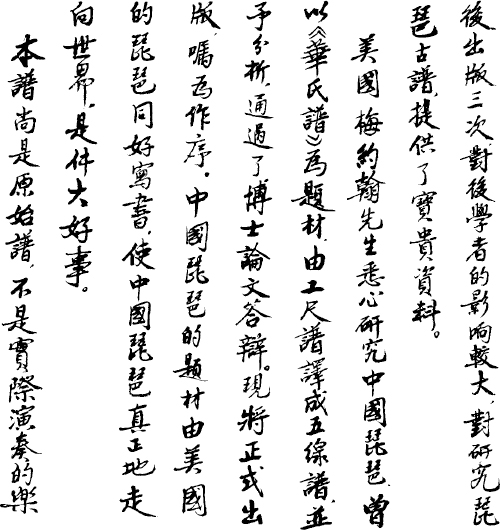 後出版三次,對後學者的影响較大,對研究琵
琶古譜,提供了寶貴資料。
美國梅約翰先生悉心研究中國琵琶,曾
以《華氏譜》為題材,由工尺譜譯成五線譜,並
予分析,通過了博士論文答辯。現將正式出
版,囑為作序。中國琵琶的題材由美國
的琵琶同好寫書,使中國琵琶真正地走
向世界,是件大好事。
本譜尚是原始譜,不是實際演奏的樂